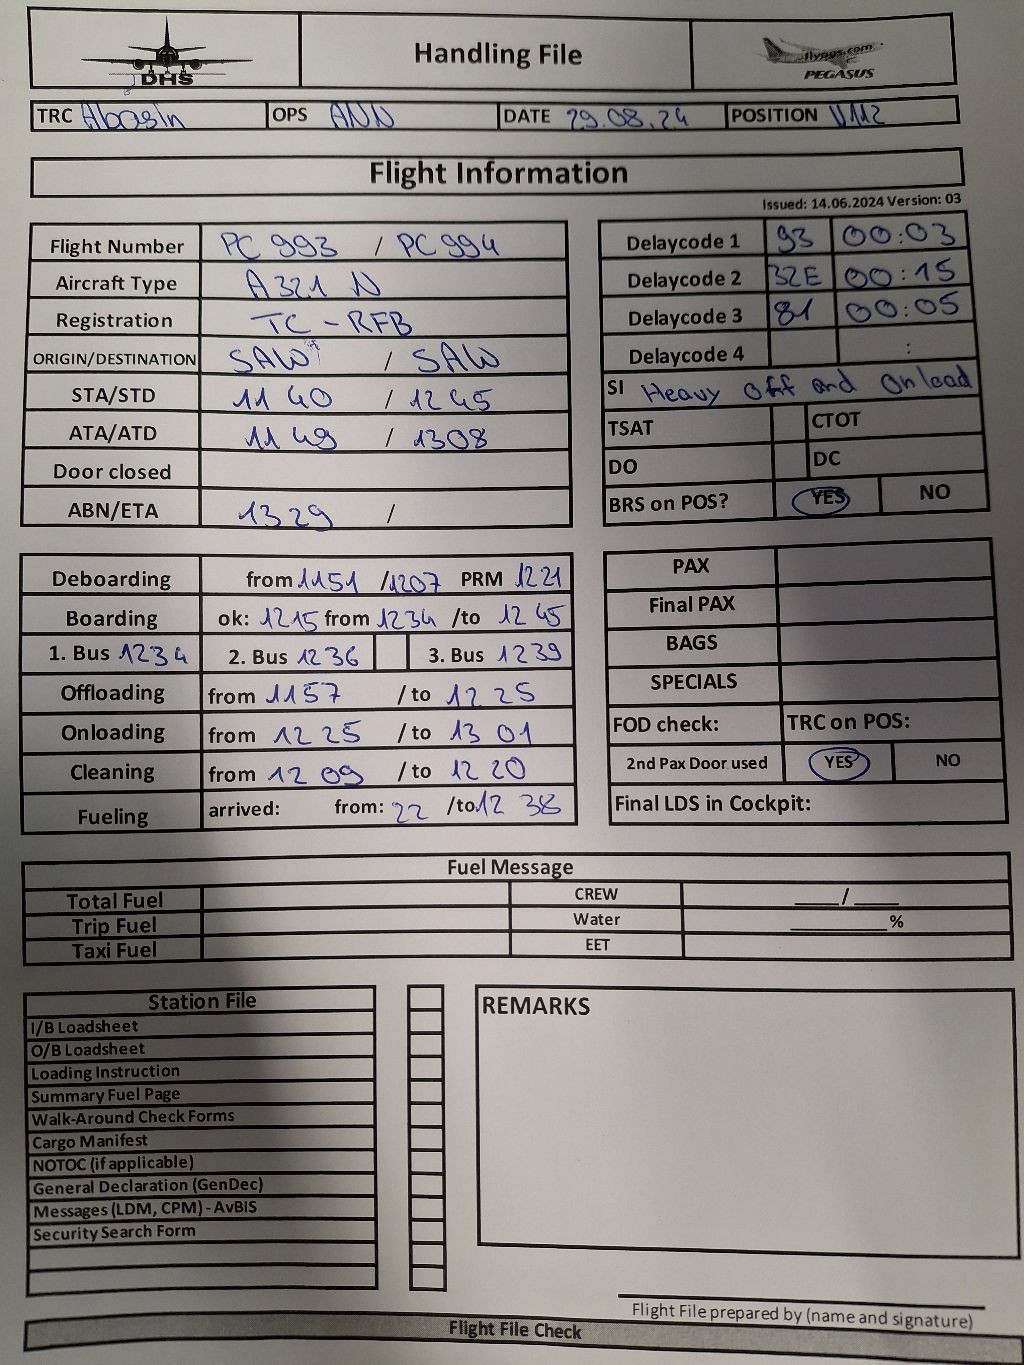 DHS
Handling File
flypgs.com
PEGASUS
TRC Abasin OPS ANN DATE 29.08.24 POSITION V112
Flight Information
Issued: 14.06.2024 Version: 03
Flight Number PC 993 / PC 994
Aircraft Type A321 N
Registration TC - RFB
ORIGIN/DESTINATION SAW / SAW
STA/STD 11 40 / 12 45
ATA/ATD 11 49 / 1308
Door closed
ABN/ETA 13 29 /
Delaycode 1 93 00:03
Delaycode 2 32E 00:15
Delaycode 3 81 00:05
Delaycode 4 :
SI Heavy Off and Onload
TSAT CTOT
DO DC
BRS on POS? YES NO
Deboarding from 1151 /1207 PRM 1221
Boarding ok: 1215 from 1234 /to 12 45
1. Bus 1234 2. Bus 1236 3. Bus 1239
Offloading from 1157 / to 12 25
Onloading from 12 25 / to 13 01
Cleaning from 12 09 / to 12 20
Fueling arrived: from: 22 /to 12 38
PAX
Final PAX
BAGS
SPECIALS
FOD check: TRC on POS:
2nd Pax Door used YES NO
Final LDS in Cockpit:
Fuel Message
Total Fuel CREW ____/____
Trip Fuel Water _________%
Taxi Fuel EET
Station File
I/B Loadsheet
O/B Loadsheet
Loading Instruction
Summary Fuel Page
Walk-Around Check Forms
Cargo Manifest
NOTOC (if applicable)
General Declaration (GenDec)
Messages (LDM, CPM) - AvBIS
Security Search Form
REMARKS
Flight File prepared by (name and signature)
Flight File Check